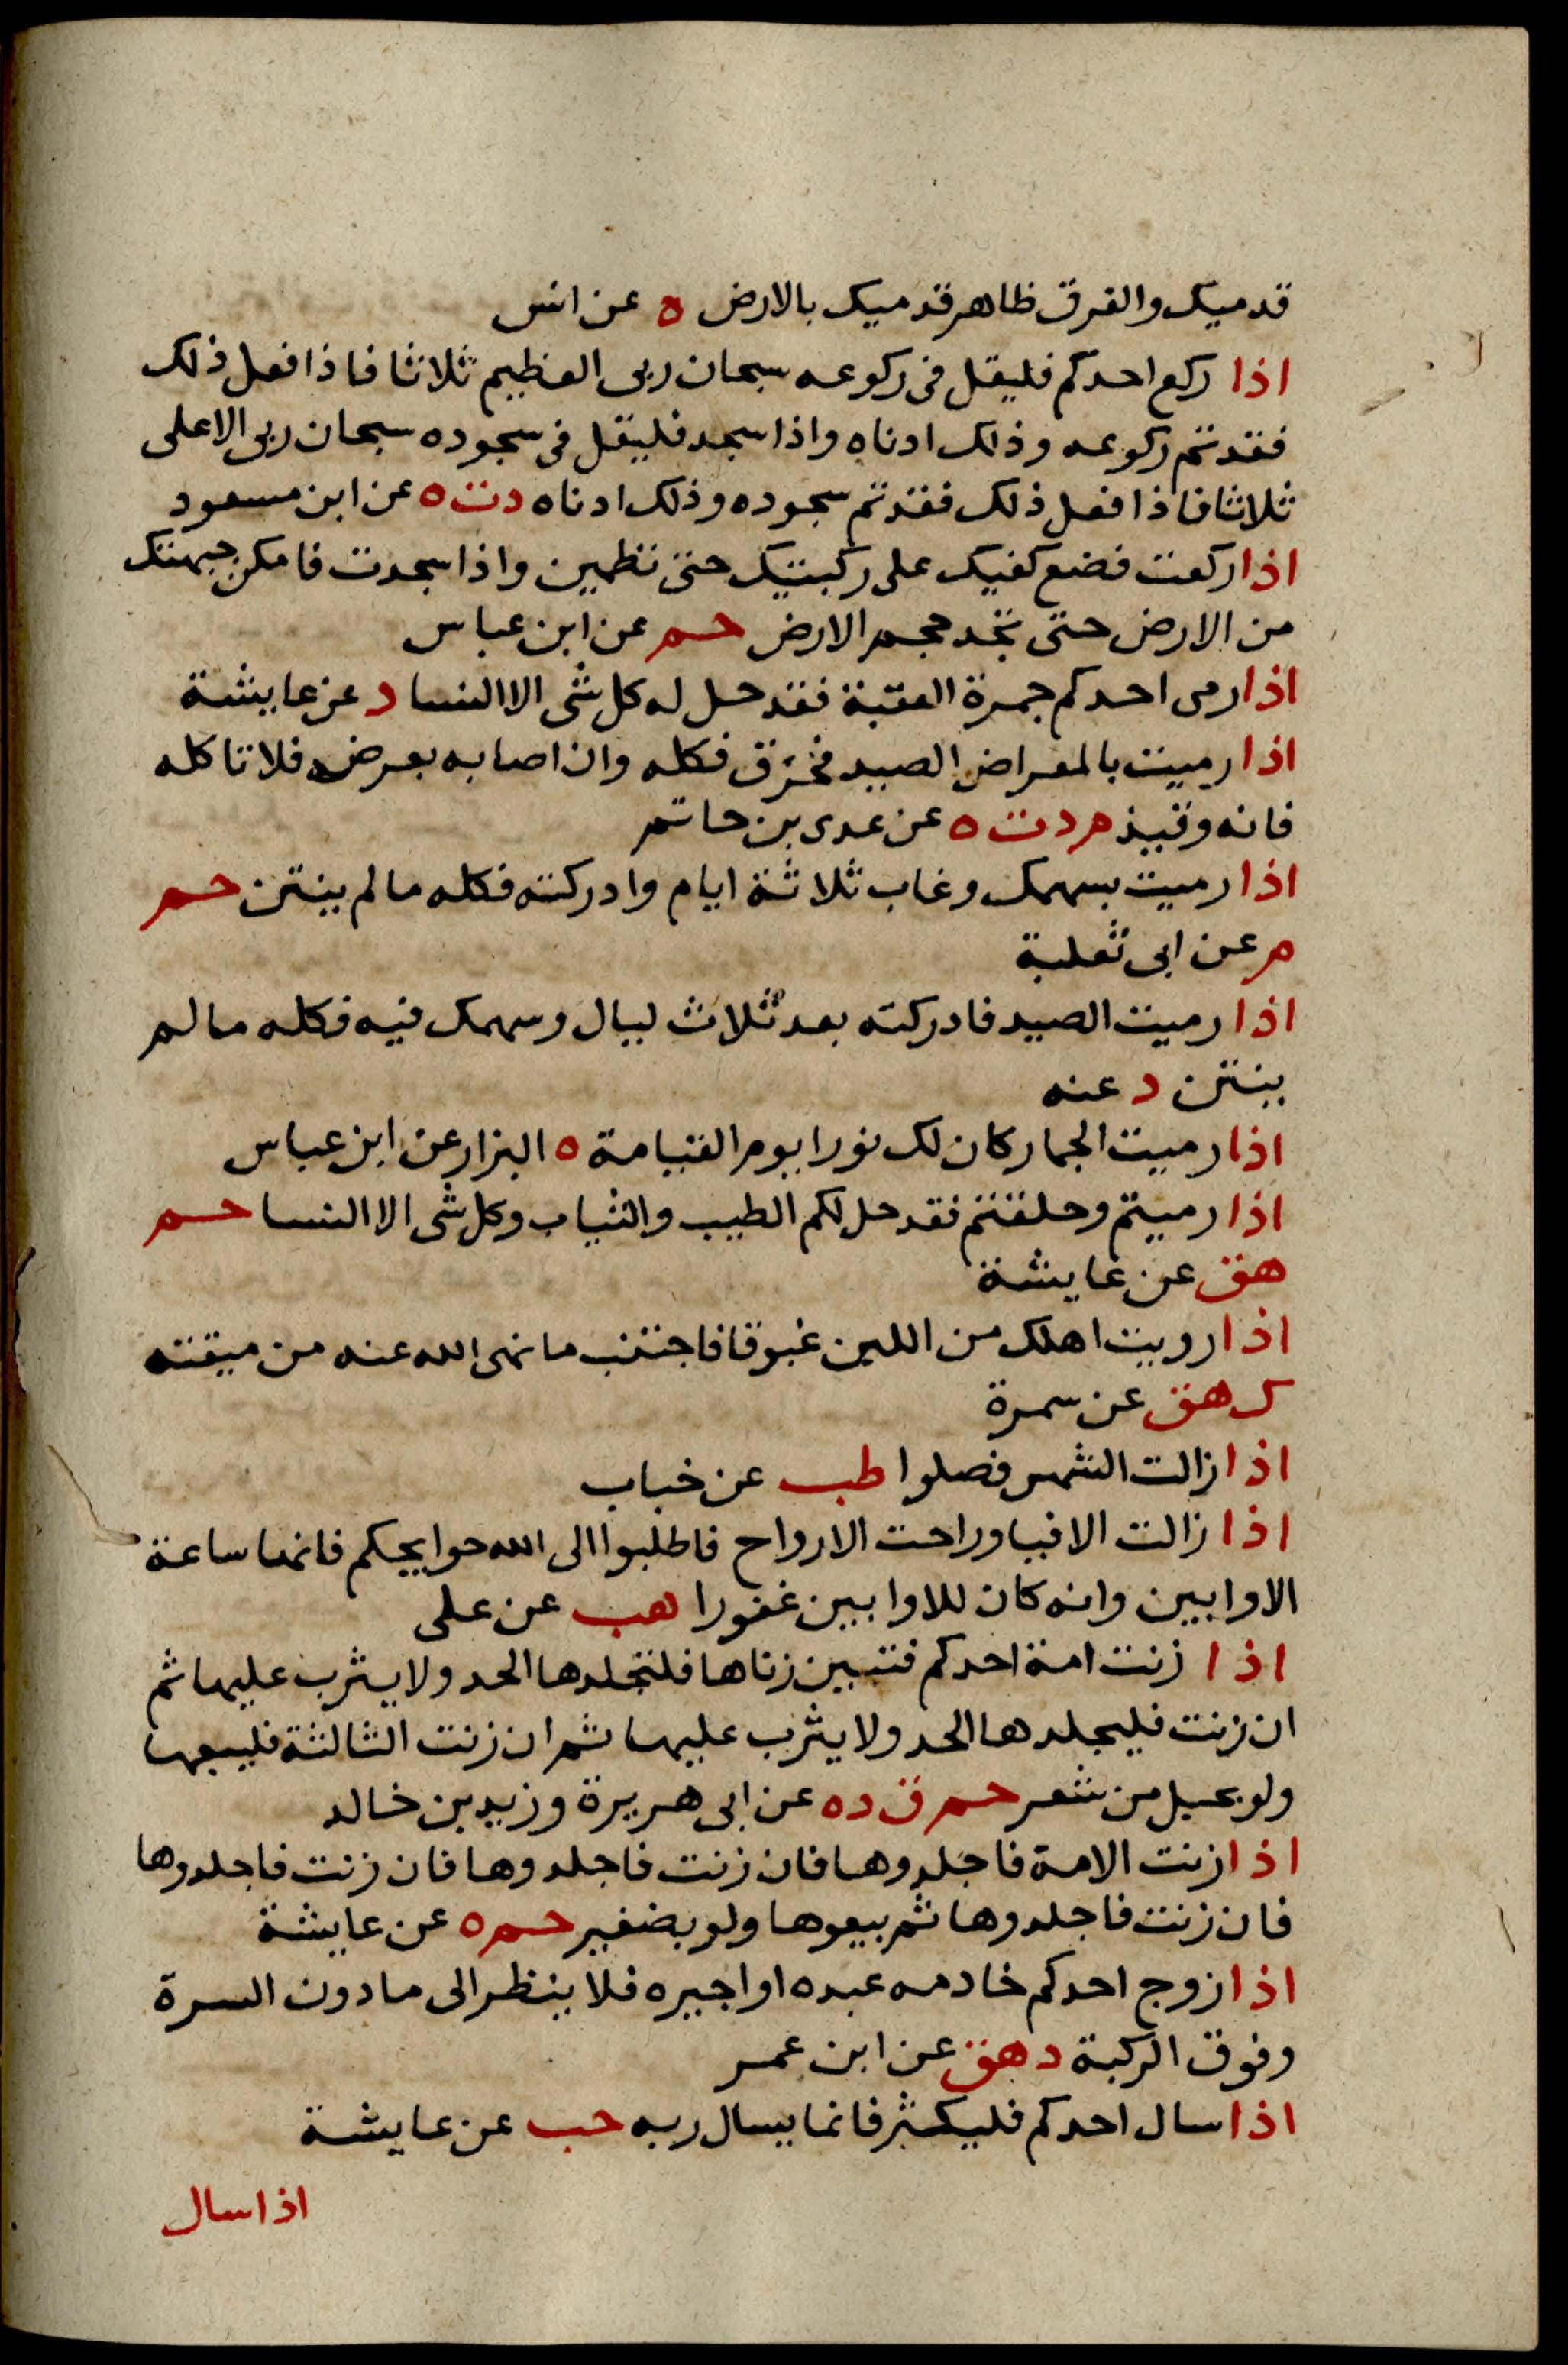 قدميك والفرق ظاهر قدميك بالارض ه عن انس
اذا ركع احدكم فليقل فى ركوعه سبحان ربى العظيم ثلاثا فاذا فعل ذلك
فقد تم ركوعه وذلك ادناه واذا سجد فليقل فى سجوده سبحان ربى الاعلى
ثلاثا فاذا فعل ذلك فقد تم سجوده وذلك ادناه دت ه عن ابن مسعود
اذا ركعت فضع كفيك على ركبتيك حتى تطمين واذا سجدت فامكن جبهتك
من الارض حتى تجد حجم الارض حم عن ابن عباس
اذا رمى احدكم جمرة العقبة فقد حل له كل شى الا النسا د عن عايشة
اذا رميت بالمعراض الصيد فخزق فكله وان اصابه بعرضه فلا تاكله
فانه وقيذ م د ت ه عن عدى بن حاتم
اذا رميت بسهمك وغاب ثلاثة ايام وادركته فكله مالم ينتن حم
م عن ابى ثعلبة
اذا رميت الصيد فادركته بعد ثلاث ليال وسهمك فيه فكله مالم
ينتن د عنه
اذا رميت الجمار كان لك نورا يوم القيامة ه البزار عن ابن عباس
اذا رميتم وحلقتم فقد حل لكم الطيب والثياب وكل شى الا النسا حم
هق عن عايشة
اذا رويت اهلك من اللبن غبوقا فاجتنب ما نهى الله عنه من ميقته
ك هق عن سمرة
اذا زالت الشمس فصلوا طب عن خباب
اذا زالت الافيا وراحت الارواح فاطلبوا الى الله حوايجكم فانها ساعة
الاوابين وانه كان للاوابين غفورا هب عن على
اذا زنت امة احدكم فتبين زناها فلتجلدها الحد ولا يثرب عليها ثم
ان زنت فليجلدها الحد ولا يثرب عليها ثم ان زنت الثالثة فليبعها
ولو بحبل من شعر حم ق د ه عن ابى هريرة وزيد بن خالد
اذا زنت الامة فاجلدوها فان زنت فاجلدوها فان زنت فاجلدوها
فان زنت فاجلدوها ثم بيعوها ولو بضفير حم ه عن عايشة
اذا زوج احدكم خادمه عبده او اجيره فلا ينظر الى ما دون السرة
وفوق الركبة د هق عن ابن عمر
اذا سال احدكم فليكثر فانما يسال ربه حب عن عايشة
اذا سال